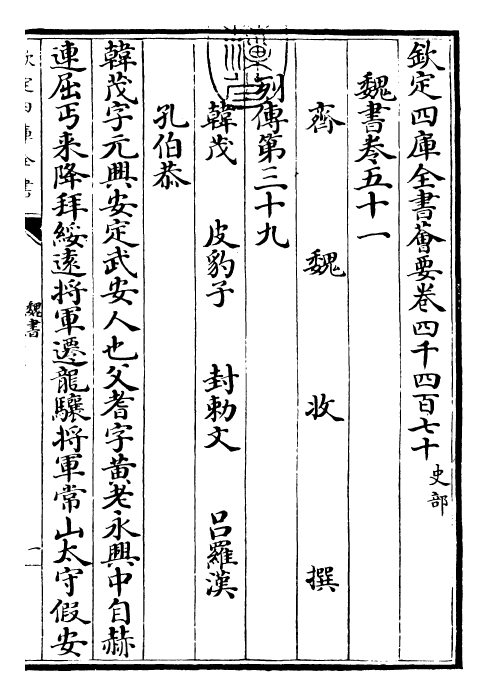 欽定四庫全書薈要卷四千四百七十 史部
魏書卷五十一
齊 魏 收 撰
列傳第三十九
韓茂 皮豹子 封勅文 吕羅漢
孔伯恭
韓茂字元興安定武安人也父耆字黄老永興中自赫
連屈丐来降拜綏逺將軍遷龍驤將軍常山太守假安
欽定四庫全書
魏書
一